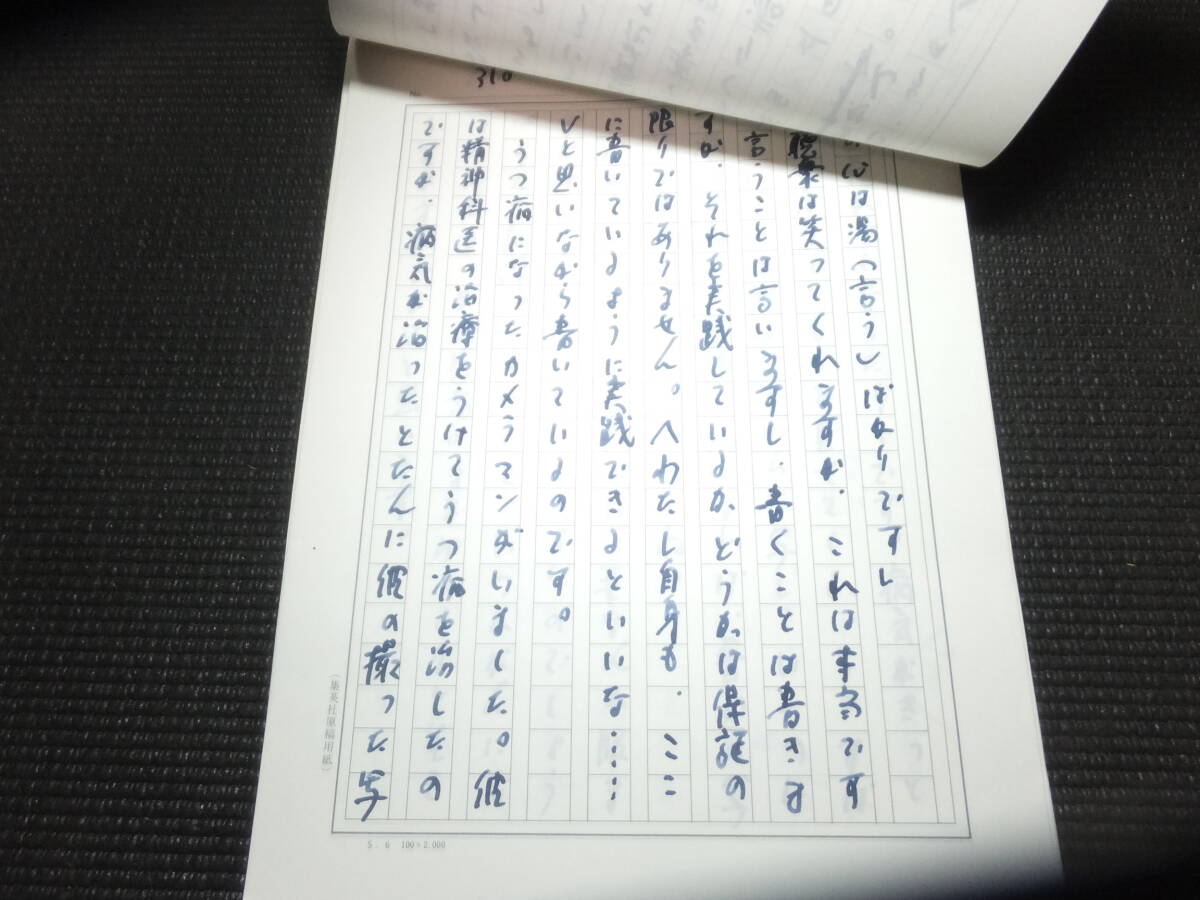 310
は湯〈言う〉ばかりですし
聴衆は笑ってくれますが、これは本当です
言うことは言いますし、書くことは書きま
すが、それを実践しているか、どうかは保証の
限りではありません。〈わたし自身も、ここ
に書いているように実践できるといいな……
〉と思いながら書いているのです。
うつ病になったカメラマンがいました。彼
は精神科医の治療をうけてうつ病を治したの
ですが、病気が治ったとたんに彼の撮った写
(集英社原稿用紙)
5.6 100×2.000